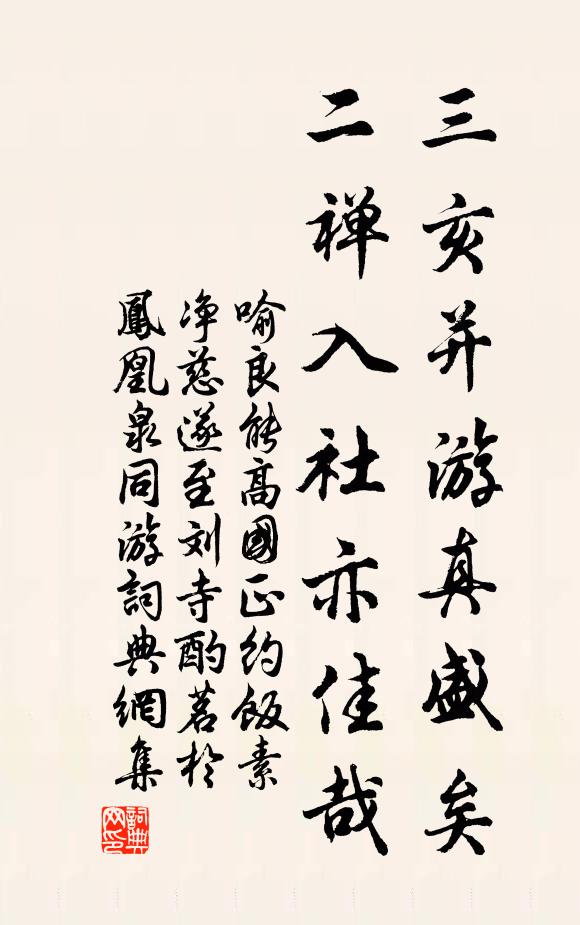 三亥并游真盛矣
二禅入社亦佳哉
喻良能高國正约飯素
净慈遂至刘寺酌茗於
鳳凰泉同游詞典網集
詞典网印